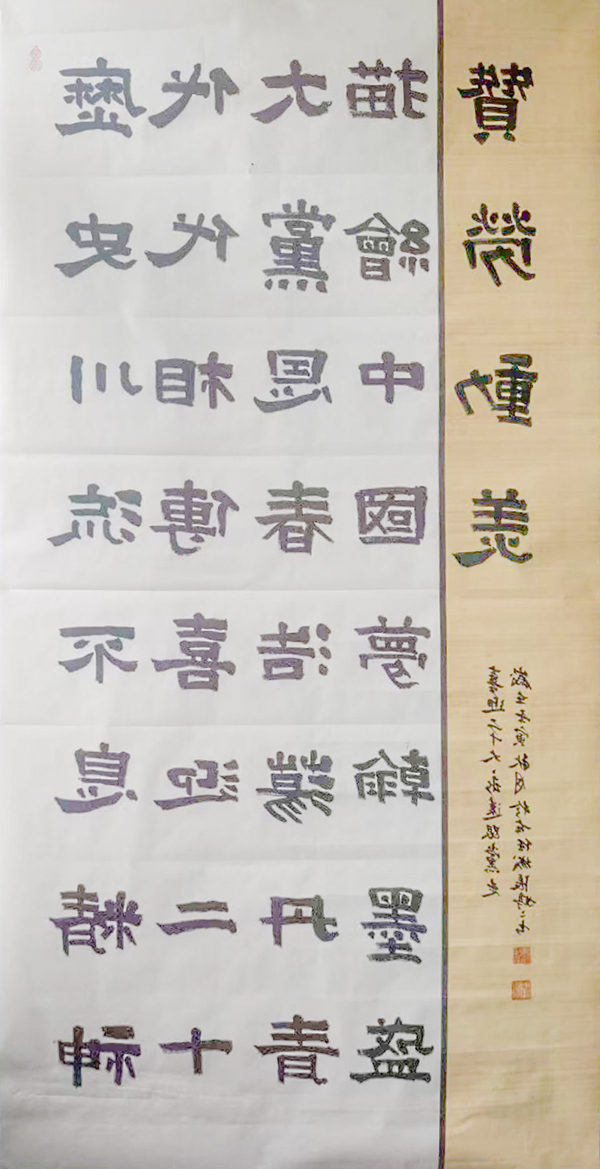 歷史川流不息精神
代代相傳喜迎二十
大黨恩春浩蕩丹青
描繪中國夢翰墨盛
贊勞動美